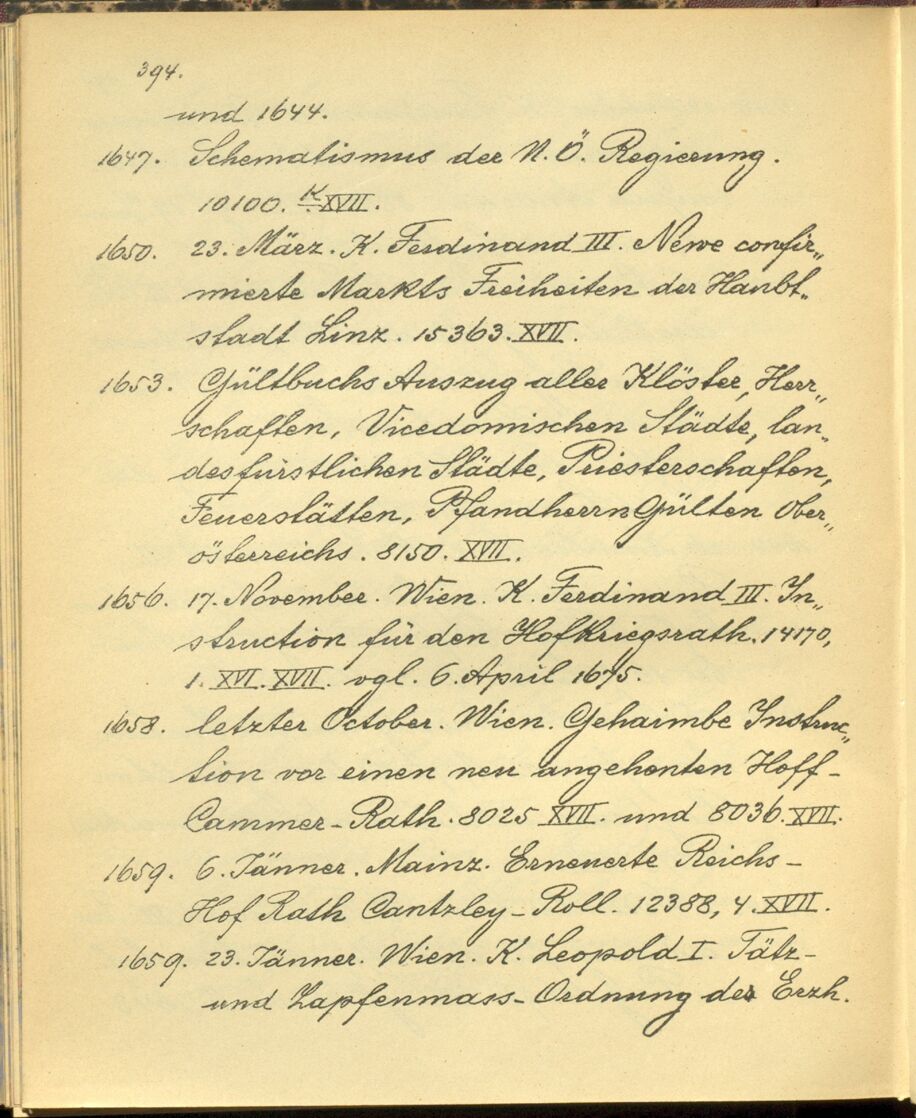 394.
und 1644.
1647. Schematismus der N. Ö. Regierung.
10100. K. XVII.
1650. 23. März. K. Ferdinand III. Newe confir„
mierte Markts Freiheiten der Haubt„
stadt Linz. 15363. XVII.
1653. Gültbuchs Auszug aller Klöster, Herr„
schaften, Vicedomischen Städte, lan„
desfürstlichen Städte, Priesterschaften,
Feuerstätten, Pfandherrn Gülten Ober„
österreichs. 8150. XVII.
1656. 17. November. Wien. K. Ferdinand III. In„
struction für den Hofkriegsrath. 14170,
1. XVI. XVII. vgl. 6. April 1675.
1658. letzter October. Wien. Gehaimbe Instruc„
tion vor einen neu angehenten Hoff-
Cammer-Rath. 8025 XVII. und 8036. XVII.
1659. 6. Jänner. Mainz. Erneuerte Reichs-
Hof Rath Cantzley-Roll. 12388, 4. XVII.
1659. 23. Jänner. Wien. K. Leopold I. Tätz-
und Zapfenmass-Ordnung des Erzh.